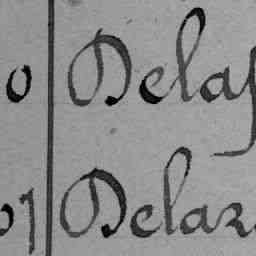 0 Delaf
01 Delar